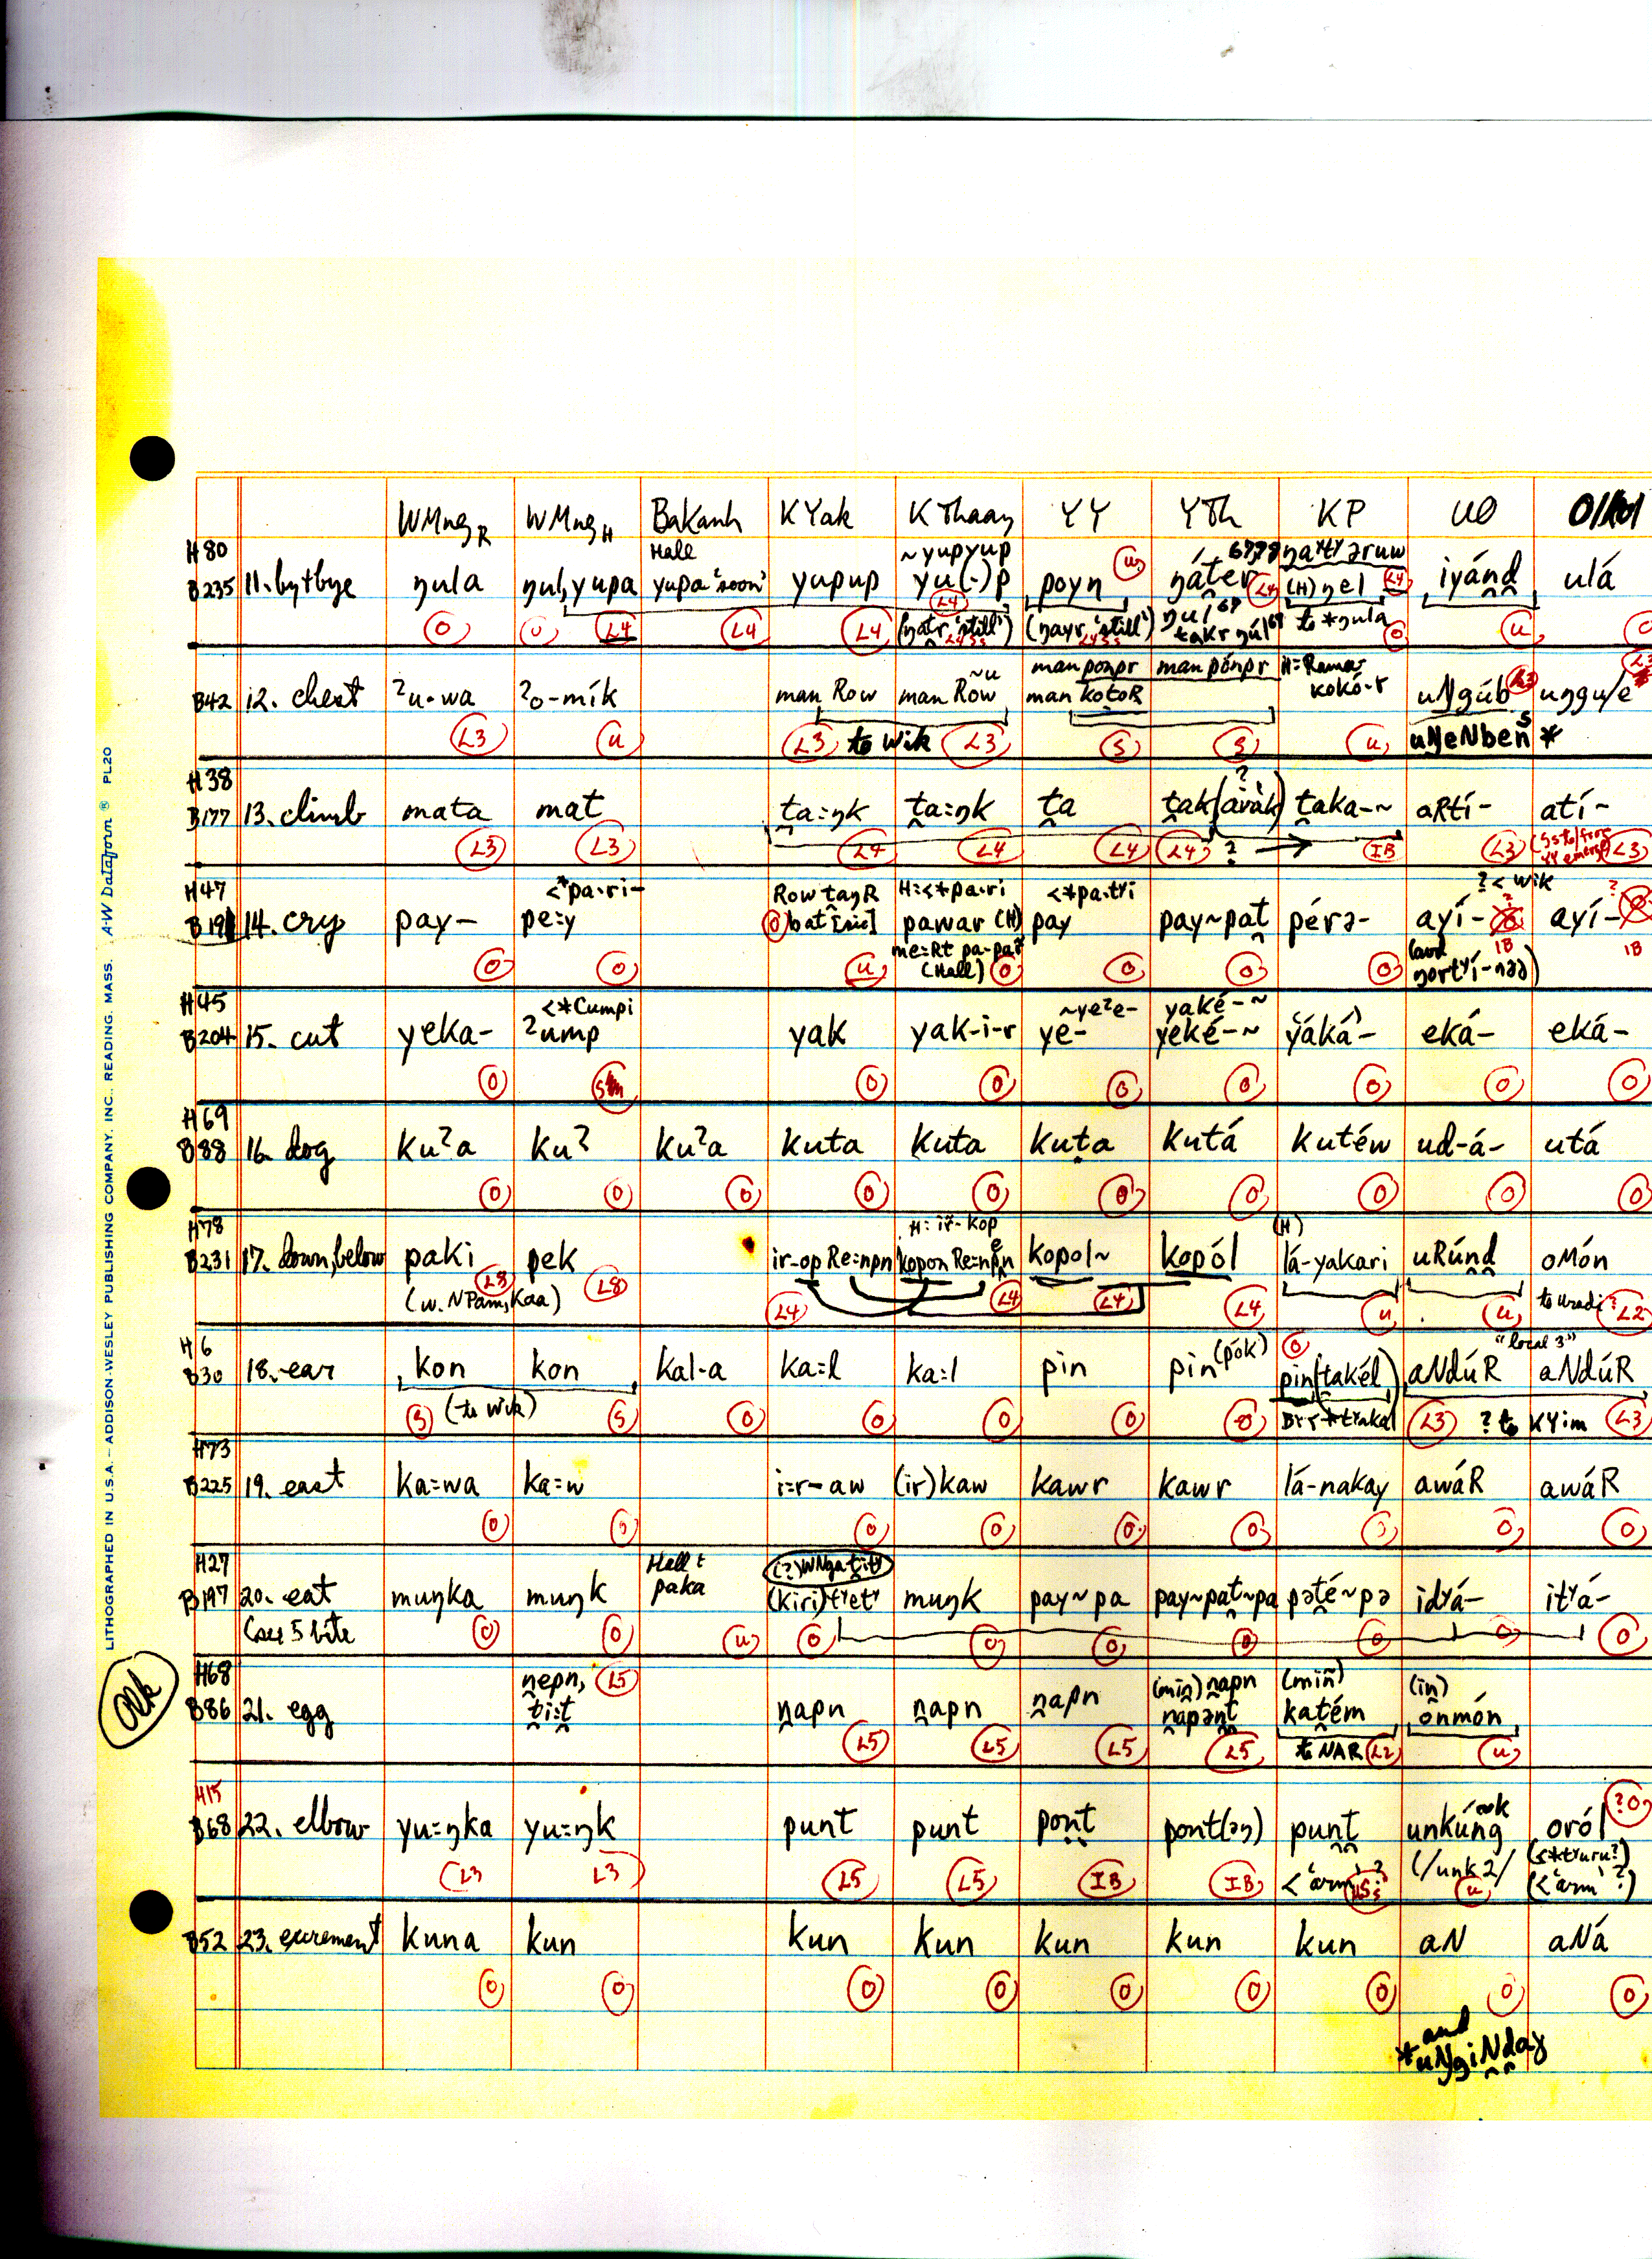 WMng R WMng H Bakanh KYak KThaay YY YTh KP UO
H80 Hall ~yupyup
B235 11. by+bye ŋula ŋul, yupa yupa 'soon' yupup yu(·)p poyn (H) ŋel iyánd ulá
0 0 L4 L4 L4 L4 u L4 L4 u
(ŋayr 'still') to *ŋula
manponpr man pónpr
B42 12. chest ʔu-wa ʔo-mík man Row man Row man kotoR kokó-r uNgúb
L3 u L3 to Wik L3 S S u uNeNbeñ *
H38
B177 13. climb mata mat ta=ŋk ta=ŋk ta tak(arák) taka-~ aRtí- atí-
L3 L3 L4 L4 L4 L4 ? IB L3 L3
H47 <*pa·ri- Row taŋR H:<*pa·ri <*pa·tʸi ?< wik
B191 14. cry pay- pe=y bat [sic] pawar (H) pay pay~pat pérə- ayí- ayí-
0 0 u (Hall) 0 0 0 0 IB IB
H45 <*Cumpi ~yeʔe- yaké-~
B204 15. cut yeka- ʔump yak yak-i-r ye- yeké-~ yáká- eká- eká-
0 0 0 0 0 0 0 0
H69
B88 16. dog kuʔa kuʔ kuʔa kuta kuta kuta kutá kutéw ud-á- utá
0 0 0 0 0 0 0 0 0 0
H78 H: iř-kop (H)
B231 17. down, below paki pek ir-op Re=npn kopon Re=npn kopol~ kopól lá-yakari uRúnd oMón
L8 L8 L4 L4 L4 L4 u u L2
(w. NPam, Kaa)
H6 "local 3"
B30 18. ear kon kon kal-a ka=l ka=l pin pin (pók) pin(takél) aNdúR aNdúR
S (to Wik) S 0 0 0 0 0 L3 ? to KYim L3
H73
B225 19. east ka=wa ka=w i=r-aw (ir)kaw kawr kawr lá-nakay awáR awáR
0 0 0 0 0 0 0 0 0
H27 Hall:
B197 20. eat muŋka muŋk paka (kiri)tʸetʸ muŋk pay~pa pay~pat~pa pəté~pə idʸá- itʸá-
(see 5 bite 0 0 u 0 0 0 0 0 0 0
H68 nepn, L5 (min) napn (miñ) (in)
B86 21. egg ti=t napn napn napn napənt katém onmón
L5 L5 L5 L5 to NAR L2 u
H15
B68 22. elbow yu=ŋka yu=ŋk punt punt pont pont(əŋ) punt unkúng oról ?0
L3 L3 L5 L5 IB IB <'arm' ? (/unk2/ u (<'arm' ?)
B52 23. excrement kuna kun kun kun kun kun kun aN aNá
0 0 0 0 0 0 0 0 0
and
*uNgiNday
Ok
LITHOGRAPHED IN U.S.A. – ADDISON-WESLEY PUBLISHING COMPANY, INC., READING, MASS. A-W Dataform ® PL20